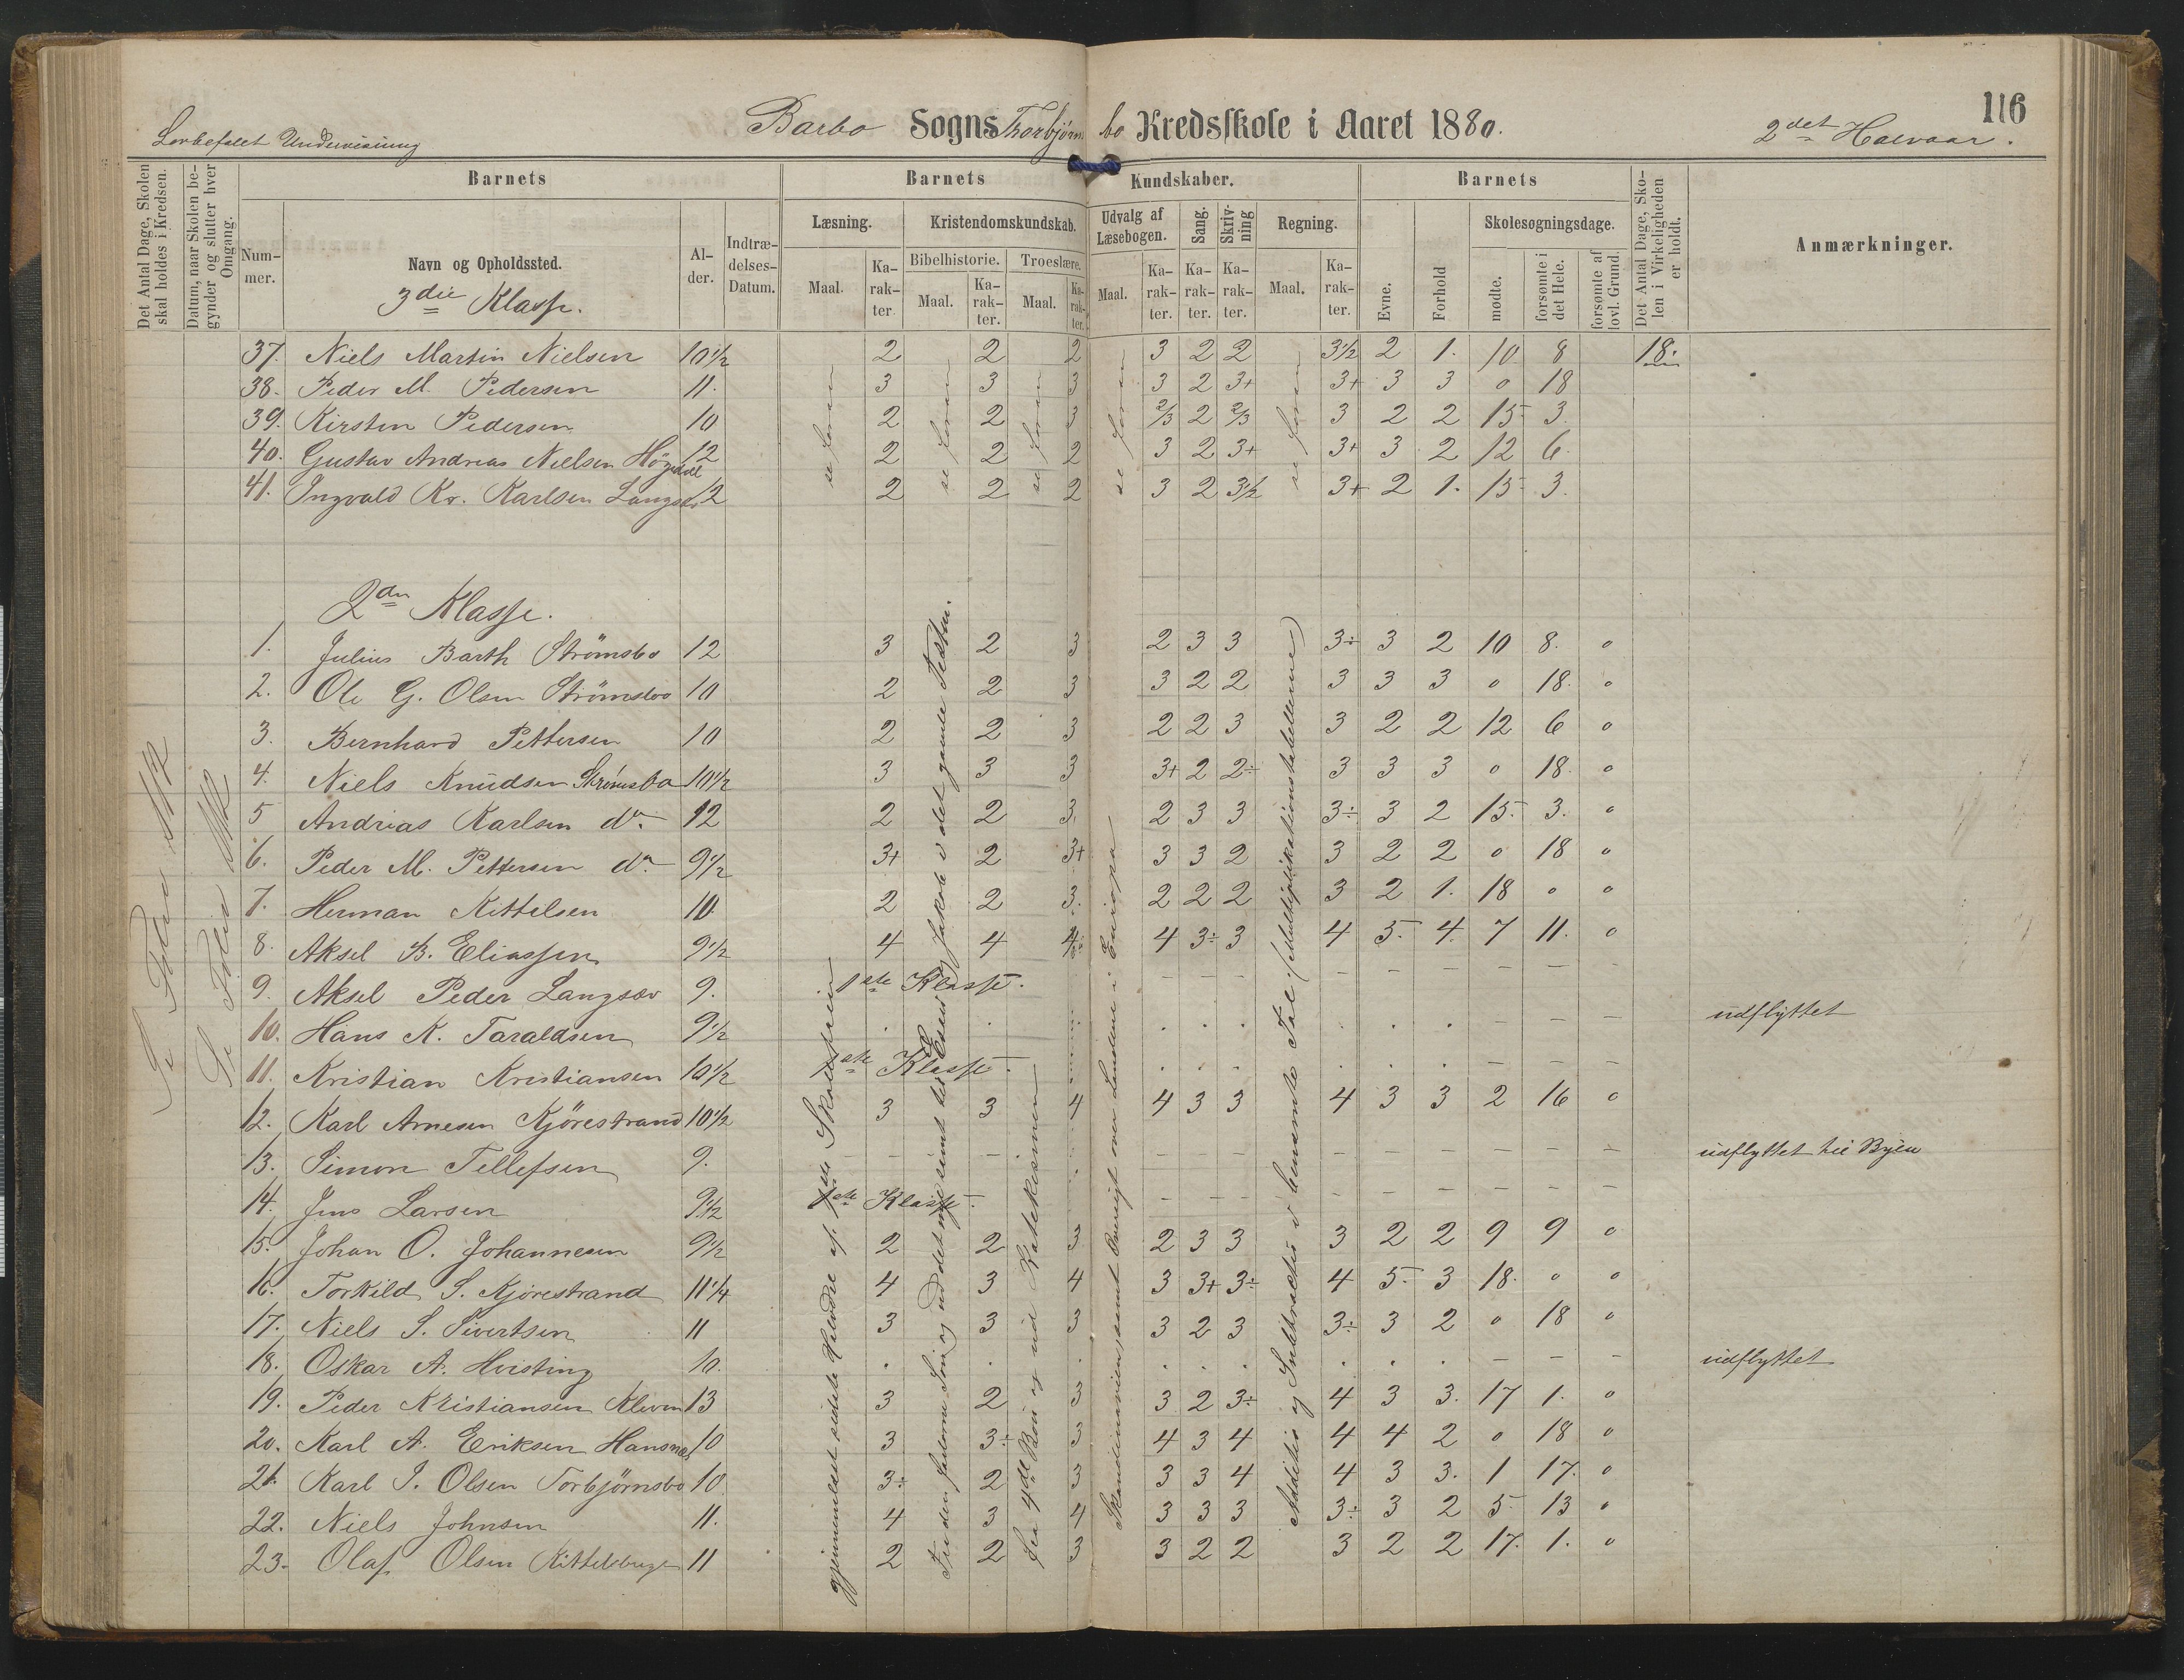 116
Barbo Sogns Thorbjørnsbo Kredsskole i Aaret 1880.
Lovbefalet Undervisning
2det Halvaar.
Det Antal Dage, Skolen skal holdes i Kredsen.
Datum, naar Skolen begynder og slutter hver Omgang.
Barnets
Nummer.
Navn og Opholdssted.
Alder.
Indtrædelses-Datum.
Barnets Kundskaber.
Læsning.
Maal. Karakter.
Kristendomskundskab.
Bibelhistorie.
Maal. Karakter.
Troeslære.
Maal. Karakter.
Udvalg af Læsebogen.
Maal. Karakter.
Sang.
Karakter.
Skrivning
Karakter.
Regning.
Maal. Karakter.
Barnets
Evne.
Forhold
Skolesøgningsdage.
mødte.
forsømte i det Hele.
forsømte af lovl. Grund.
Det Antal Dage, Skolen i Virkeligheden er holdt.
Anmærkninger.
3die Klasse.
37. Niels Martin Nielsen 10 1/2 2 2 2 3 2 2 3 1/2 2 1. 10 8 18.
38. Peder M. Pedersen 11. 3 3 3 3 2 3+ 3+ 3 3 0 18
39. Kirsten Pedersen 10 2 2 3 2/3 2 2/3 3 2 2 15 3.
40. Gustav Andreas Nielsen Högedal 12 2 2 2 3 2 3+ 3+ 3 2 12 6.
41. Ingvald Kr. Karlsen Langsæv 12 2 2 2 3 2 3 1/2 3+ 2 1. 15 3.
se foran
se foran
se foran
se foran
se foran
2den Klasse.
1. Julius Barth Strömsbo 12 3 2 3 2 3 3 3÷ 3 2 10 8. 0
2. Ole G. Olsen Strömsbo 10 2 2 3 3 2 2 3 3 3 0 18. 0
3. Bernhard Pettersen 10 2 2 3 2 2 3 3 2 2 12 6 0
4. Niels Knudsen Strömsbo 10 1/2 3 3 3 3+ 2 2÷ 3 3 3 0 18. 0
5 Andreas Karlsen do. 12 2 2 3. 2 3 3 3÷ 3 2 15. 3. 0
6. Peder M. Pettersen do. 9 1/2 3+ 2 3+ 3 3 2 3 2 2 0 18 0
7. Herman Kittelsen 10. 2 2 3. 2 2 2 3 2 1. 18 0 0
8. Aksel B. Eliassen 9 1/2 4 4 4 4 3÷ 3 4 5. 4. 7 11. 0
9. Aksel Peder Langsæv 9. 1ste Klasse. – – – – – – – – –
10. Hans K. Taraldsen 9 1/2 . . . . . . . . . – – – udflyttet
11. Kristian Kristiansen 10 1/2 1ste Klasse. . . . . . . – – –
12. Karl Arnesen Kjörestrand 10 1/2 3 3 4 4 3 3 4 3 3 2 16 0
13. Simon Tellefsen 9. – – – – – – – – – – – udflyttet til Byen
14. Jens Larsen 9 1/2 1ste Klasse. – – – – – – – – –
15. Johan O. Johannesen 9 1/2 2 2 3 2 3 3 3 2 2 9 9 0
16. Torkild S. Kjörestrand 11 1/4 4 3 4 3 3+ 3÷ 4 5. 3 18. 0 0
17. Niels S. Sivertsen 11 3 3 3 3 2 3 3÷ 3 2 0 18 0
18. Oskar A. Hvisting 10. . . . . . . . . . – – – udflyttet
19. Peder Kristiansen Kleven 13 3 2 3 3 2 3÷ 4 3 3. 17 1. 0
20. Karl A. Eriksen Hansnæs 10 3 3÷ 3 4 3 4 4 4 2 0 18 0
21. Karl J. Olsen Torbjörnsbo 10 3÷ 2 3 3 3 4 4 3 3. 1 17. 0
22. Niels Johnsen 11. 4 3 4 3 3 3 3÷ 3 2 5 13 0
23. Olaf Olsen Kittelsbugt 11 2 2 3 3 2 2 3 2 2 17. 1. 0
Se Folio 112
Se Folio 112
gjennemlæst sidste Halvdre af 1ste Skoletrin
Fra den fortorne Søn og ud det nye samt til Esau og Jakob i det gamle Testm.
fra 4de Bøn og ud Katekismen
Skandinavien, samt Oversigt over Landene i Europa
Addition og Subtraction i benævnte Tal (Multiplikationstabellerne)